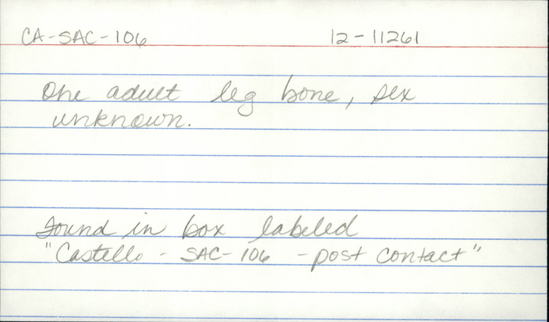 CA-SAC-106 12-11261
One adult leg bone, sex
unknown.
Found in box labeled
"Castello - SAC-106 - post contact"